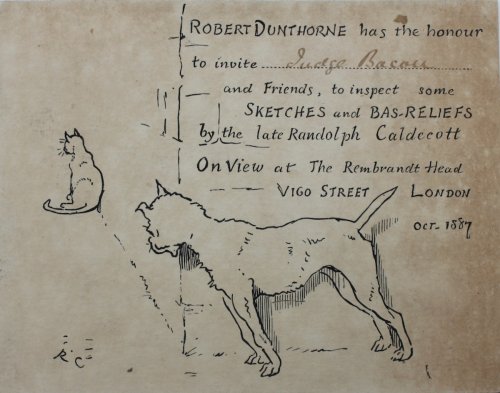 ROBERT DUNTHORNE has the honour
to invite Judge Bacon
and Friends, to inspect some
SKETCHES and BAS-RELIEFS
by the late Randolph Caldecott
On View at The Rembrandt Head
VIGO STREET LONDON
OCT. 1887
R.C